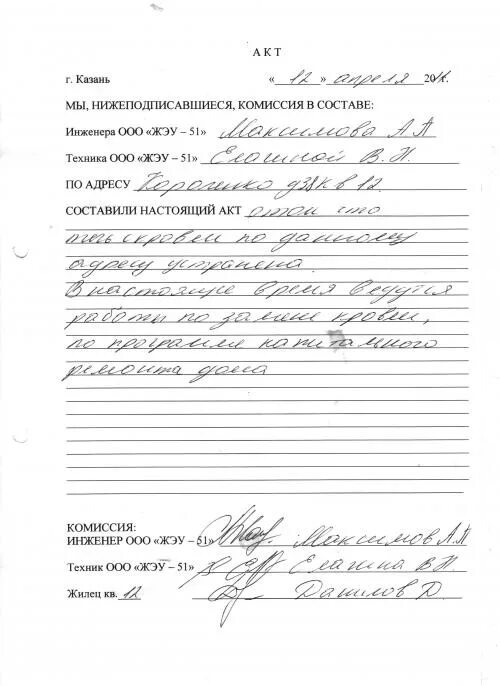 АКТ
г. Казань « 12 » апреля 2011.
МЫ, НИЖЕПОДПИСАВШИЕСЯ, КОМИССИЯ В СОСТАВЕ:
Инженера ООО «ЖЭУ – 51» Максимова А.П
Техника ООО «ЖЭУ – 51» Елашной В. Н.
ПО АДРЕСУ Короленко д38 кв 12.
СОСТАВИЛИ НАСТОЯЩИЙ АКТ о том что
течь с кровли по данному
адресу устранена.
В настоящие время ведутся
работы по замене кровли,
по программе капитального
ремонта дома
КОМИССИЯ:
ИНЖЕНЕР ООО «ЖЭУ – 51» Максимов А.П
Техник ООО «ЖЭУ – 51» Елагина В.Н.
Жилец кв. 12 Данилов Д.